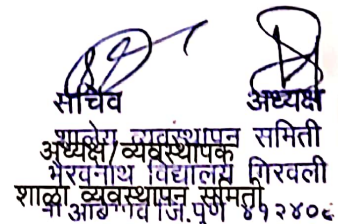 सचिव अध्यक्ष
शालेय व्यवस्थापन समिती
अध्यक्ष/व्यवस्थापक
भैरवनाथ विद्यालय गिरवली
शाळा व्यवस्थापन समिती
जि.पुणे